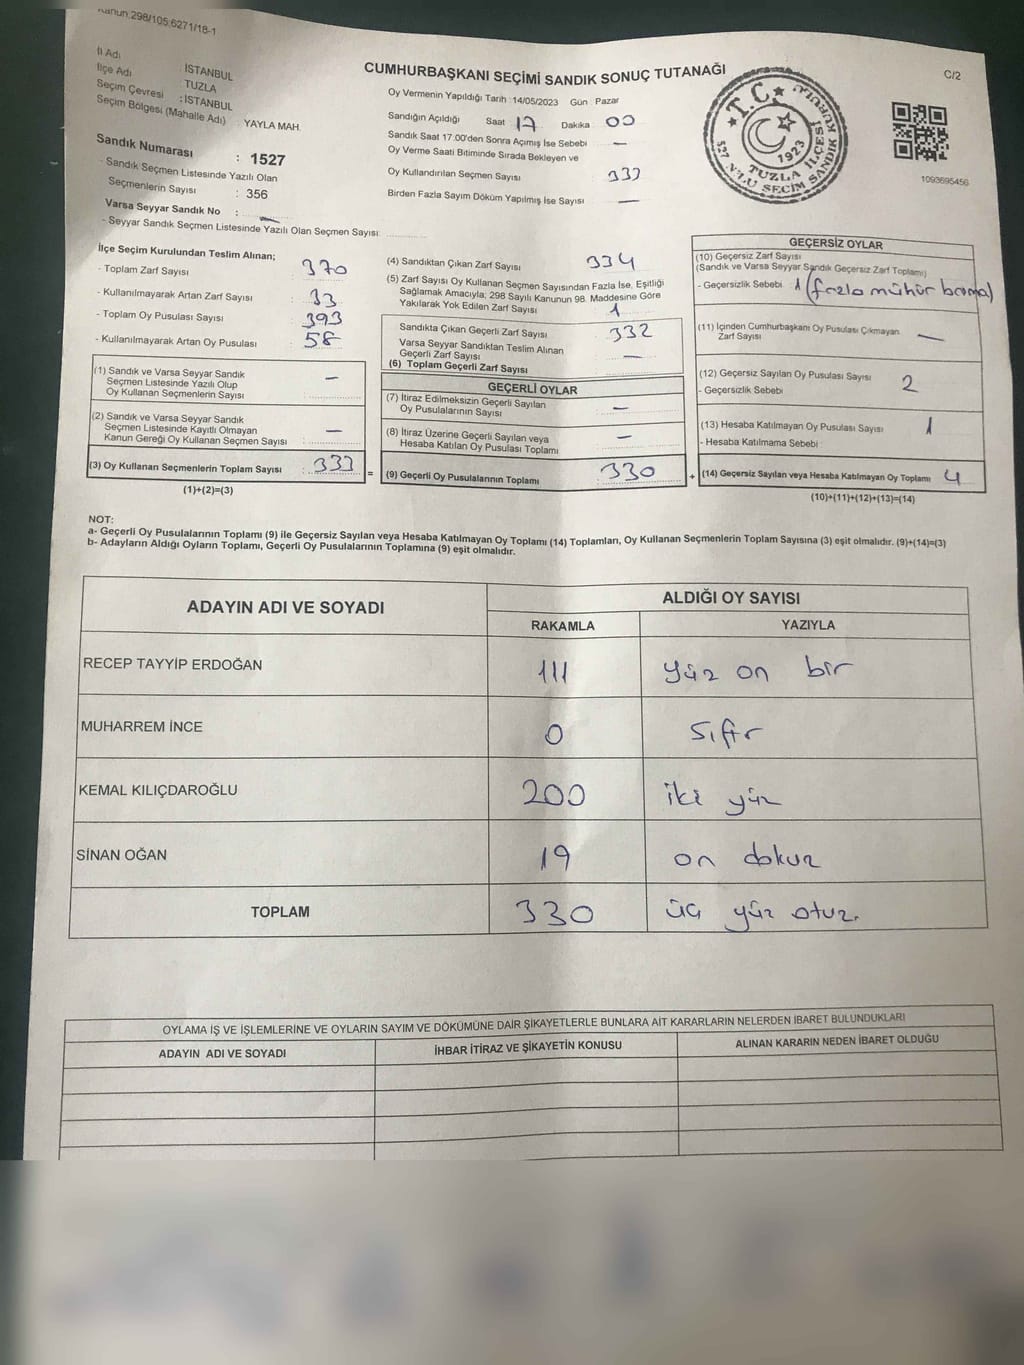 Kanun:298/105;6271/18-1
İl Adı İSTANBUL
İlçe Adı TUZLA
Seçim Çevresi : İSTANBUL
Seçim Bölgesi (Mahalle Adı) YAYLA MAH.
Sandık Numarası : 1527
- Sandık Seçmen Listesinde Yazılı Olan
Seçmenlerin Sayısı : 356
Varsa Seyyar Sandık No : —
- Seyyar Sandık Seçmen Listesinde Yazılı Olan Seçmen Sayısı:
CUMHURBAŞKANI SEÇİMİ SANDIK SONUÇ TUTANAĞI
C/2
Oy Vermenin Yapıldığı Tarih :14/05/2023 Gün : Pazar
Sandığın Açıldığı Saat 17 Dakika 00
Sandık Saat 17.00'den Sonra Açılmış İse Sebebi —
Oy Verme Saati Bitiminde Sırada Bekleyen ve
Oy Kullandırılan Seçmen Sayısı 333
Birden Fazla Sayım Döküm Yapılmış İse Sayısı —
T.C.
1923
TUZLA İLÇESİ
1527 N'LU SEÇİM SANDIK KURULU
1093695456
İlçe Seçim Kurulundan Teslim Alınan;
- Toplam Zarf Sayısı : 370
- Kullanılmayarak Artan Zarf Sayısı : 33
- Toplam Oy Pusulası Sayısı : 393
- Kullanılmayarak Artan Oy Pusulası : 58
(1) Sandık ve Varsa Seyyar Sandık
Seçmen Listesinde Yazılı Olup
Oy Kullanan Seçmenlerin Sayısı : —
(2) Sandık ve Varsa Seyyar Sandık
Seçmen Listesinde Kayıtlı Olmayan
Kanun Gereği Oy Kullanan Seçmen Sayısı : —
(3) Oy Kullanan Seçmenlerin Toplam Sayısı : 333
(1)+(2)=(3)
=
(4) Sandıktan Çıkan Zarf Sayısı : 334
(5) Zarf Sayısı Oy Kullanan Seçmen Sayısından Fazla İse, Eşitliği
Sağlamak Amacıyla; 298 Sayılı Kanunun 98. Maddesine Göre
Yakılarak Yok Edilen Zarf Sayısı : 1
Sandıkta Çıkan Geçerli Zarf Sayısı : 332
Varsa Seyyar Sandıktan Teslim Alınan
Geçerli Zarf Sayısı : —
(6) Toplam Geçerli Zarf Sayısı
GEÇERLİ OYLAR
(7) İtiraz Edilmeksizin Geçerli Sayılan
Oy Pusulalarının Sayısı : —
(8) İtiraz Üzerine Geçerli Sayılan veya
Hesaba Katılan Oy Pusulası Toplamı : —
(9) Geçerli Oy Pusulalarının Toplamı : 330
+
GEÇERSİZ OYLAR
(10) Geçersiz Zarf Sayısı
(Sandık ve Varsa Seyyar Sandık Geçersiz Zarf Toplamı)
- Geçersizlik Sebebi 1 (fazla mühür basma)
(11) İçinden Cumhurbaşkanı Oy Pusulası Çıkmayan
Zarf Sayısı —
(12) Geçersiz Sayılan Oy Pusulası Sayısı 2
- Geçersizlik Sebebi
(13) Hesaba Katılmayan Oy Pusulası Sayısı 1
- Hesaba Katılmama Sebebi
(14) Geçersiz Sayılan veya Hesaba Katılmayan Oy Toplamı 4
(10)+(11)+(12)+(13)=(14)
NOT:
a- Geçerli Oy Pusulalarının Toplamı (9) ile Geçersiz Sayılan veya Hesaba Katılmayan Oy Toplamı (14) Toplamları, Oy Kullanan Seçmenlerin Toplam Sayısına (3) eşit olmalıdır. (9)+(14)=(3)
b- Adayların Aldığı Oyların Toplamı, Geçerli Oy Pusulalarının Toplamına (9) eşit olmalıdır.
ADAYIN ADI VE SOYADI
ALDIĞI OY SAYISI
RAKAMLA YAZIYLA
RECEP TAYYİP ERDOĞAN 111 yüz on bir
MUHARREM İNCE 0 sıfır
KEMAL KILIÇDAROĞLU 200 iki yüz
SİNAN OĞAN 19 on dokuz
TOPLAM 330 üç yüz otuz.
OYLAMA İŞ VE İŞLEMLERİNE VE OYLARIN SAYIM VE DÖKÜMÜNE DAİR ŞİKAYETLERLE BUNLARA AİT KARARLARIN NELERDEN İBARET BULUNDUKLARI
ADAYIN ADI VE SOYADI İHBAR İTİRAZ VE ŞİKAYETİN KONUSU ALINAN KARARIN NEDEN İBARET OLDUĞU